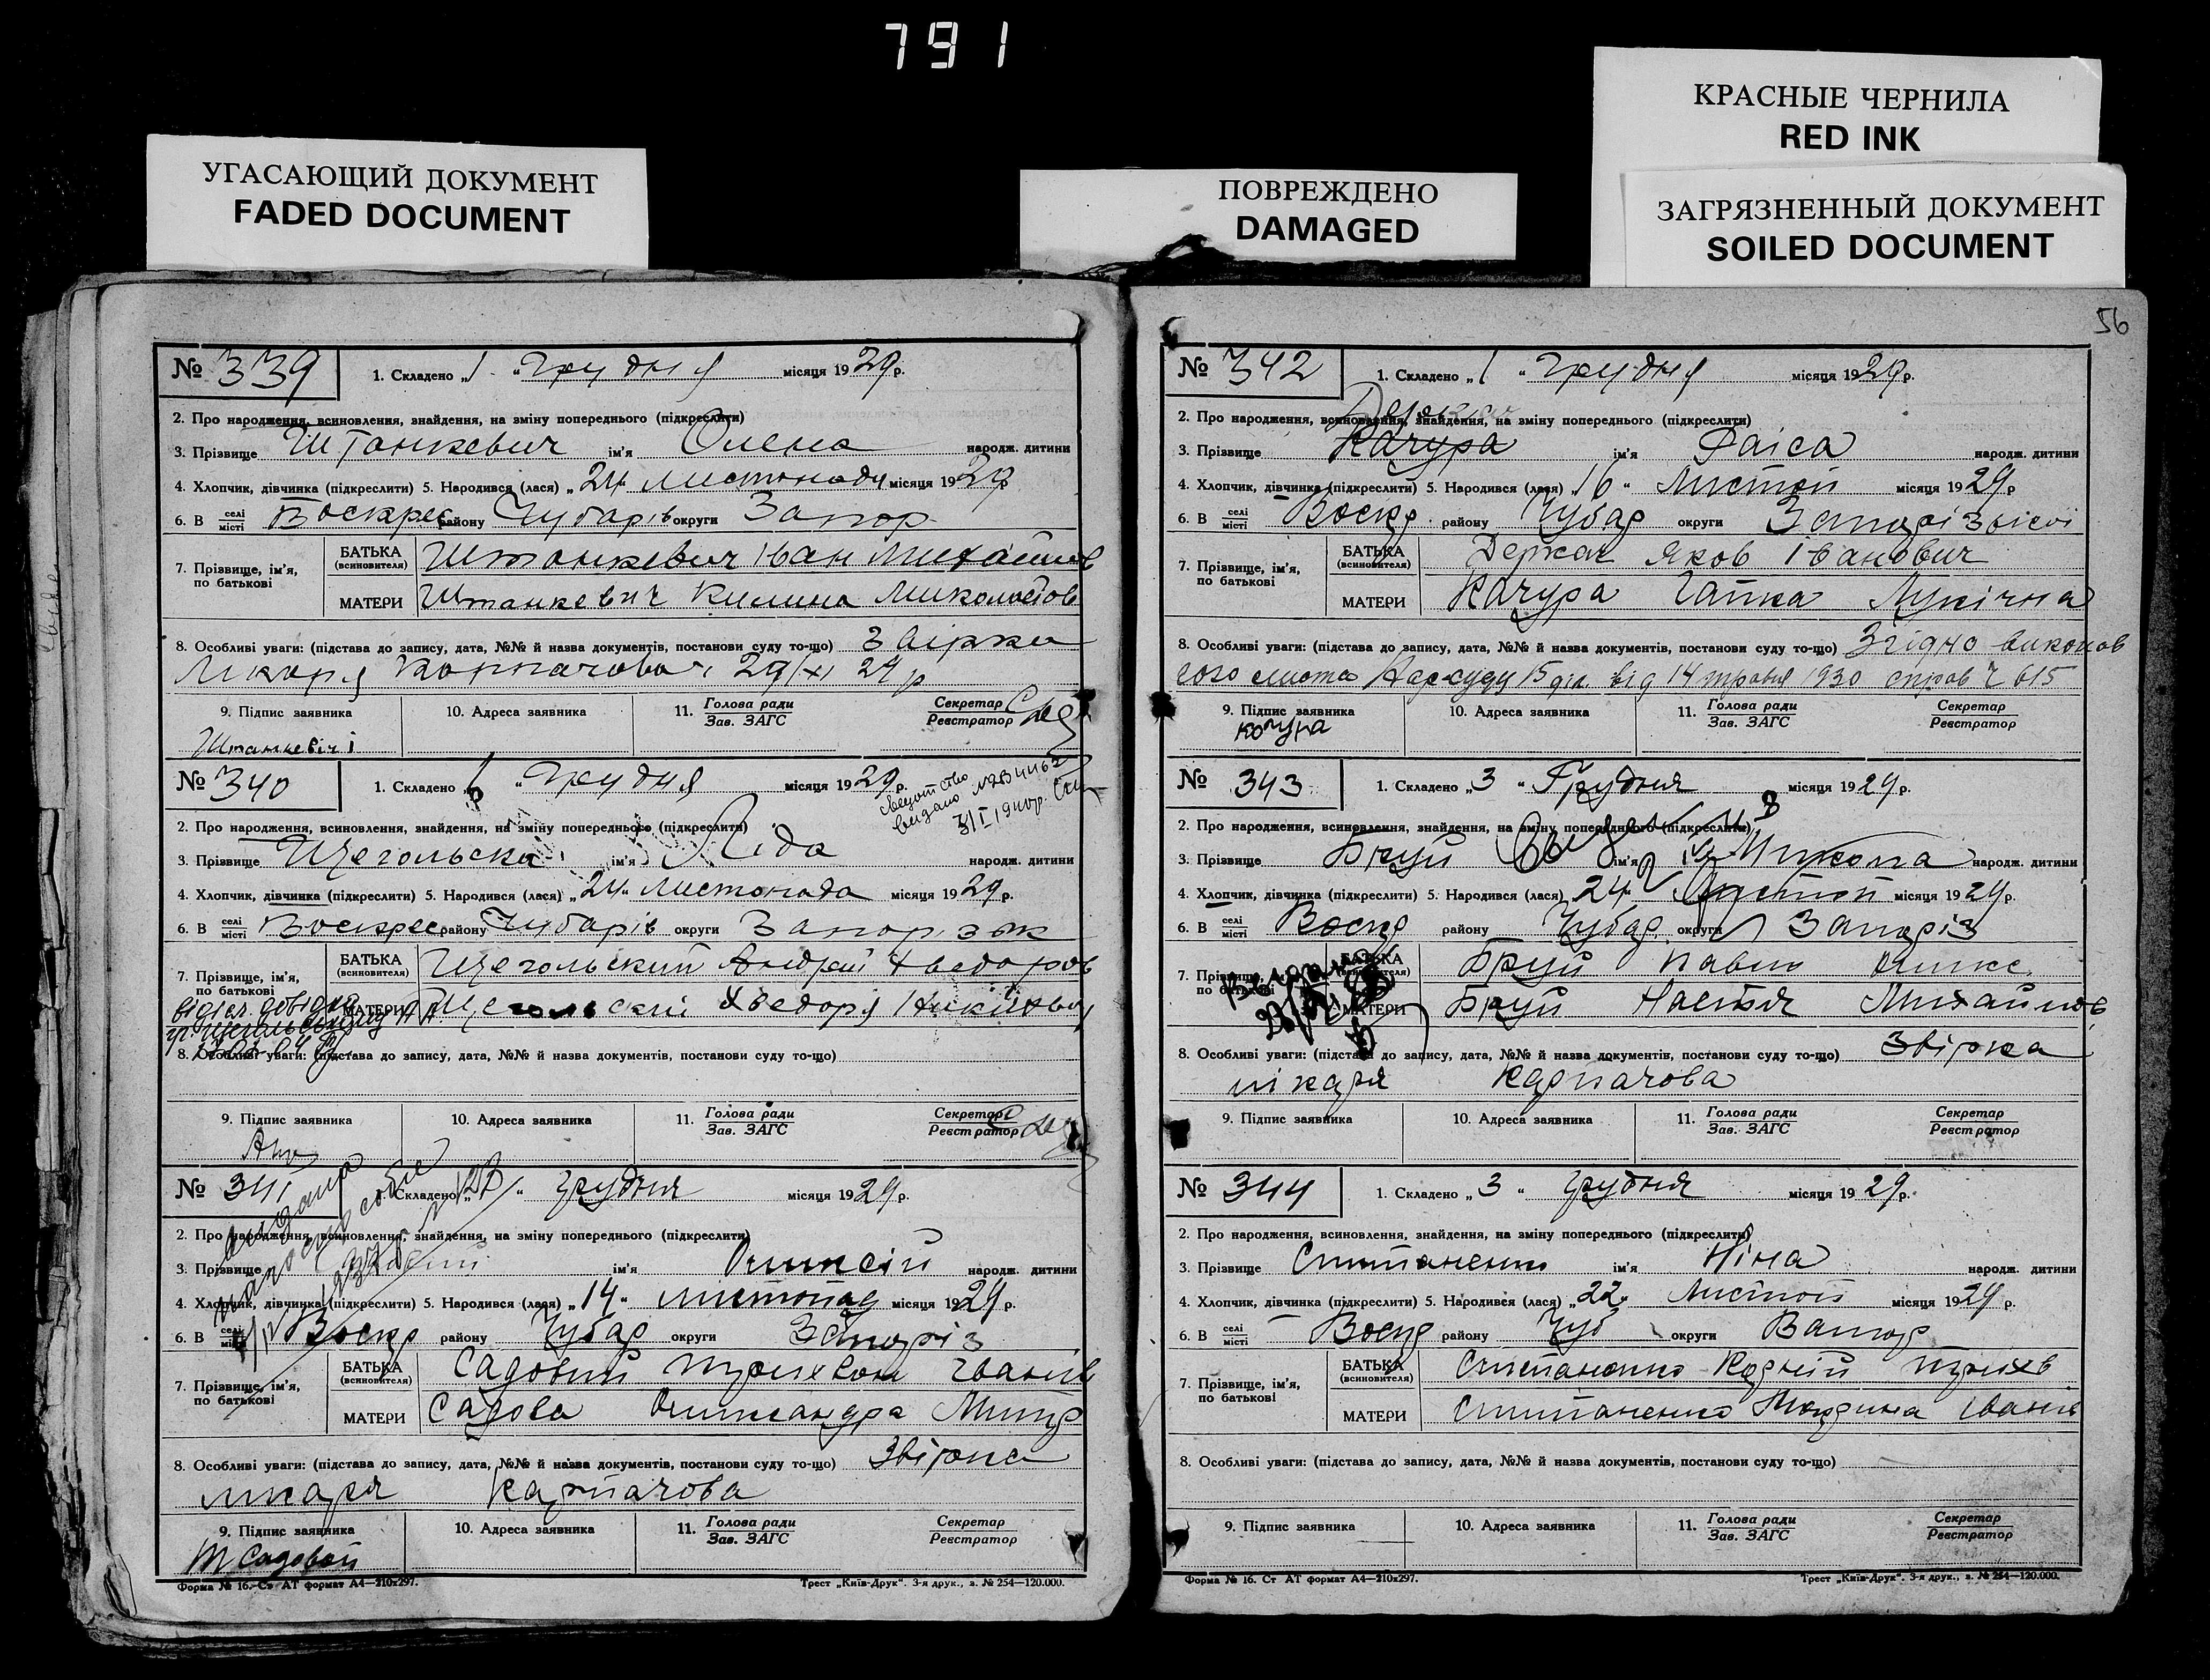 791
УГАСАЮЩИЙ ДОКУМЕНТ
FADED DOCUMENT
ПОВРЕЖДЕНО
DAMAGED
КРАСНЫЕ ЧЕРНИЛА
RED INK
ЗАГРЯЗНЕННЫЙ ДОКУМЕНТ
SOILED DOCUMENT
№ 339 1. Складено „1“ Грудня місяця 1929р.
2. Про народження, всиновлення, знайдення, на зміну попереднього (підкреслити)
3. Прізвище Штанкевич ім'я Олена народж. дитини
4. Хлопчик, дівчинка (підкреслити) 5. Народився (лася) „24“ листопада місяця 1929р
6. В селі місті Воскрес району Чубарів округи Запор
7. Прізвище, ім'я, по батькові БАТЬКА (всиновителя) Штанкевич Іван Михайлов
МАТЕРИ Штанкевич Килина Миколаєвн
8. Особливі уваги: (підстава до запису, дата, №№ й назва документів, постанови суду то-що) Звірка
Лікаря Карпачова 29/XI 29 р
9. Підпис заявника 10. Адреса заявника 11. Голова ради Зав. ЗАГС Секретар Реєстратор
Штанкевіч і
№ 340 1. Складено Грудня місяця 1929р.
свидотство видано №
31/I 1940р.
2. Про народження, всиновлення, знайдення, на зміну попереднього (підкреслити)
3. Прізвище Щегольска ім'я Ліда народж. дитини
4. Хлопчик, дівчинка (підкреслити) 5. Народився (лася) „24“ листопада місяця 1929р.
6. В селі місті Воскрес району Чубарів округи Запорізьк
7. Прізвище, ім'я, по батькові БАТЬКА (всиновителя) Щегольский Андрей Хведоров
МАТЕРИ Щегольский Хведора
8. Особливі уваги: (підстава до запису, дата, №№ й назва документів, постанови суду то-що)
9. Підпис заявника 10. Адреса заявника 11. Голова ради Зав. ЗАГС Секретар Реєстратор
№ 341 1. Складено грудня місяця 1929р.
2. Про народження, всиновлення, знайдення, на зміну попереднього (підкреслити)
3. Прізвище Садовий ім'я Олексій народж. дитини
4. Хлопчик, дівчинка (підкреслити) 5. Народився (лася) „14“ листопад місяця 1929р.
6. В селі місті Воскр району Чубар округи Запоріз
7. Прізвище, ім'я, по батькові БАТЬКА (всиновителя) Садовий Іванів
МАТЕРИ Садова Олександра Митр
8. Особливі уваги: (підстава до запису, дата, №№ й назва документів, постанови суду то-що) Звірка
лікаря Карпачова
9. Підпис заявника 10. Адреса заявника 11. Голова ради Зав. ЗАГС Секретар Реєстратор
Садовой
Форма № 16. Ст АТ формат А4—210х297. Трест „Київ-Друк“. 3-я друк., з. № 254—120.000.
56
№ 342 1. Складено „1“ Грудня місяця 1929р.
2. Про народження, всиновлення, знайдення, на зміну попереднього (підкреслити)
3. Прізвище Качура ім'я Раіса народж. дитини
4. Хлопчик, дівчинка (підкреслити) 5. Народився (лася) „16“ Листоп місяця 1929р
6. В селі місті Воскр. району Чубар округи Запорізької
7. Прізвище, ім'я, по батькові БАТЬКА (всиновителя) Держак Яков Іванович
МАТЕРИ Качура Гапка Лукічна
8. Особливі уваги: (підстава до запису, дата, №№ й назва документів, постанови суду то-що) Згідно виконов
чого листа Нарсуду 15 діл. від 14 травня 1930 справ Ч 615
9. Підпис заявника 10. Адреса заявника 11. Голова ради Зав. ЗАГС Секретар Реєстратор
№ 343 1. Складено „3“ Грудня місяця 1929р.
2. Про народження, всиновлення, знайдення, на зміну попереднього (підкреслити)
3. Прізвище Бруй ім'я Микола народж. дитини
4. Хлопчик, дівчинка (підкреслити) 5. Народився (лася) 24 Листоп місяця 1929р.
6. В селі місті Воскр району Чубар. округи Запоріз
7. Прізвище, ім'я, по батькові БАТЬКА (всиновителя) Бруй Павло Олекс.
МАТЕРИ Бруй Настя Михайлов
8. Особливі уваги: (підстава до запису, дата, №№ й назва документів, постанови суду то-що) Звірка
лікаря Карпачова
9. Підпис заявника 10. Адреса заявника 11. Голова ради Зав. ЗАГС Секретар Реєстратор
№ 344 1. Складено „3“ грудня місяця 1929р.
2. Про народження, всиновлення, знайдення, на зміну попереднього (підкреслити)
3. Прізвище Степаненко ім'я Ніна народж. дитини
4. Хлопчик, дівчинка (підкреслити) 5. Народився (лася) „22“ Листоп місяця 1929р.
6. В селі місті Воскр району Чуб округи Запор
7. Прізвище, ім'я, по батькові БАТЬКА (всиновителя) Степаненко Корній
МАТЕРИ Степаненко Іванів
8. Особливі уваги: (підстава до запису, дата, №№ й назва документів, постанови суду то-що)
9. Підпис заявника 10. Адреса заявника 11. Голова ради Зав. ЗАГС Секретар Реєстратор
Форма № 16. Ст АТ формат А4—210х297. Трест „Київ-Друк“. 3-я друк., з. № 254—120.000.